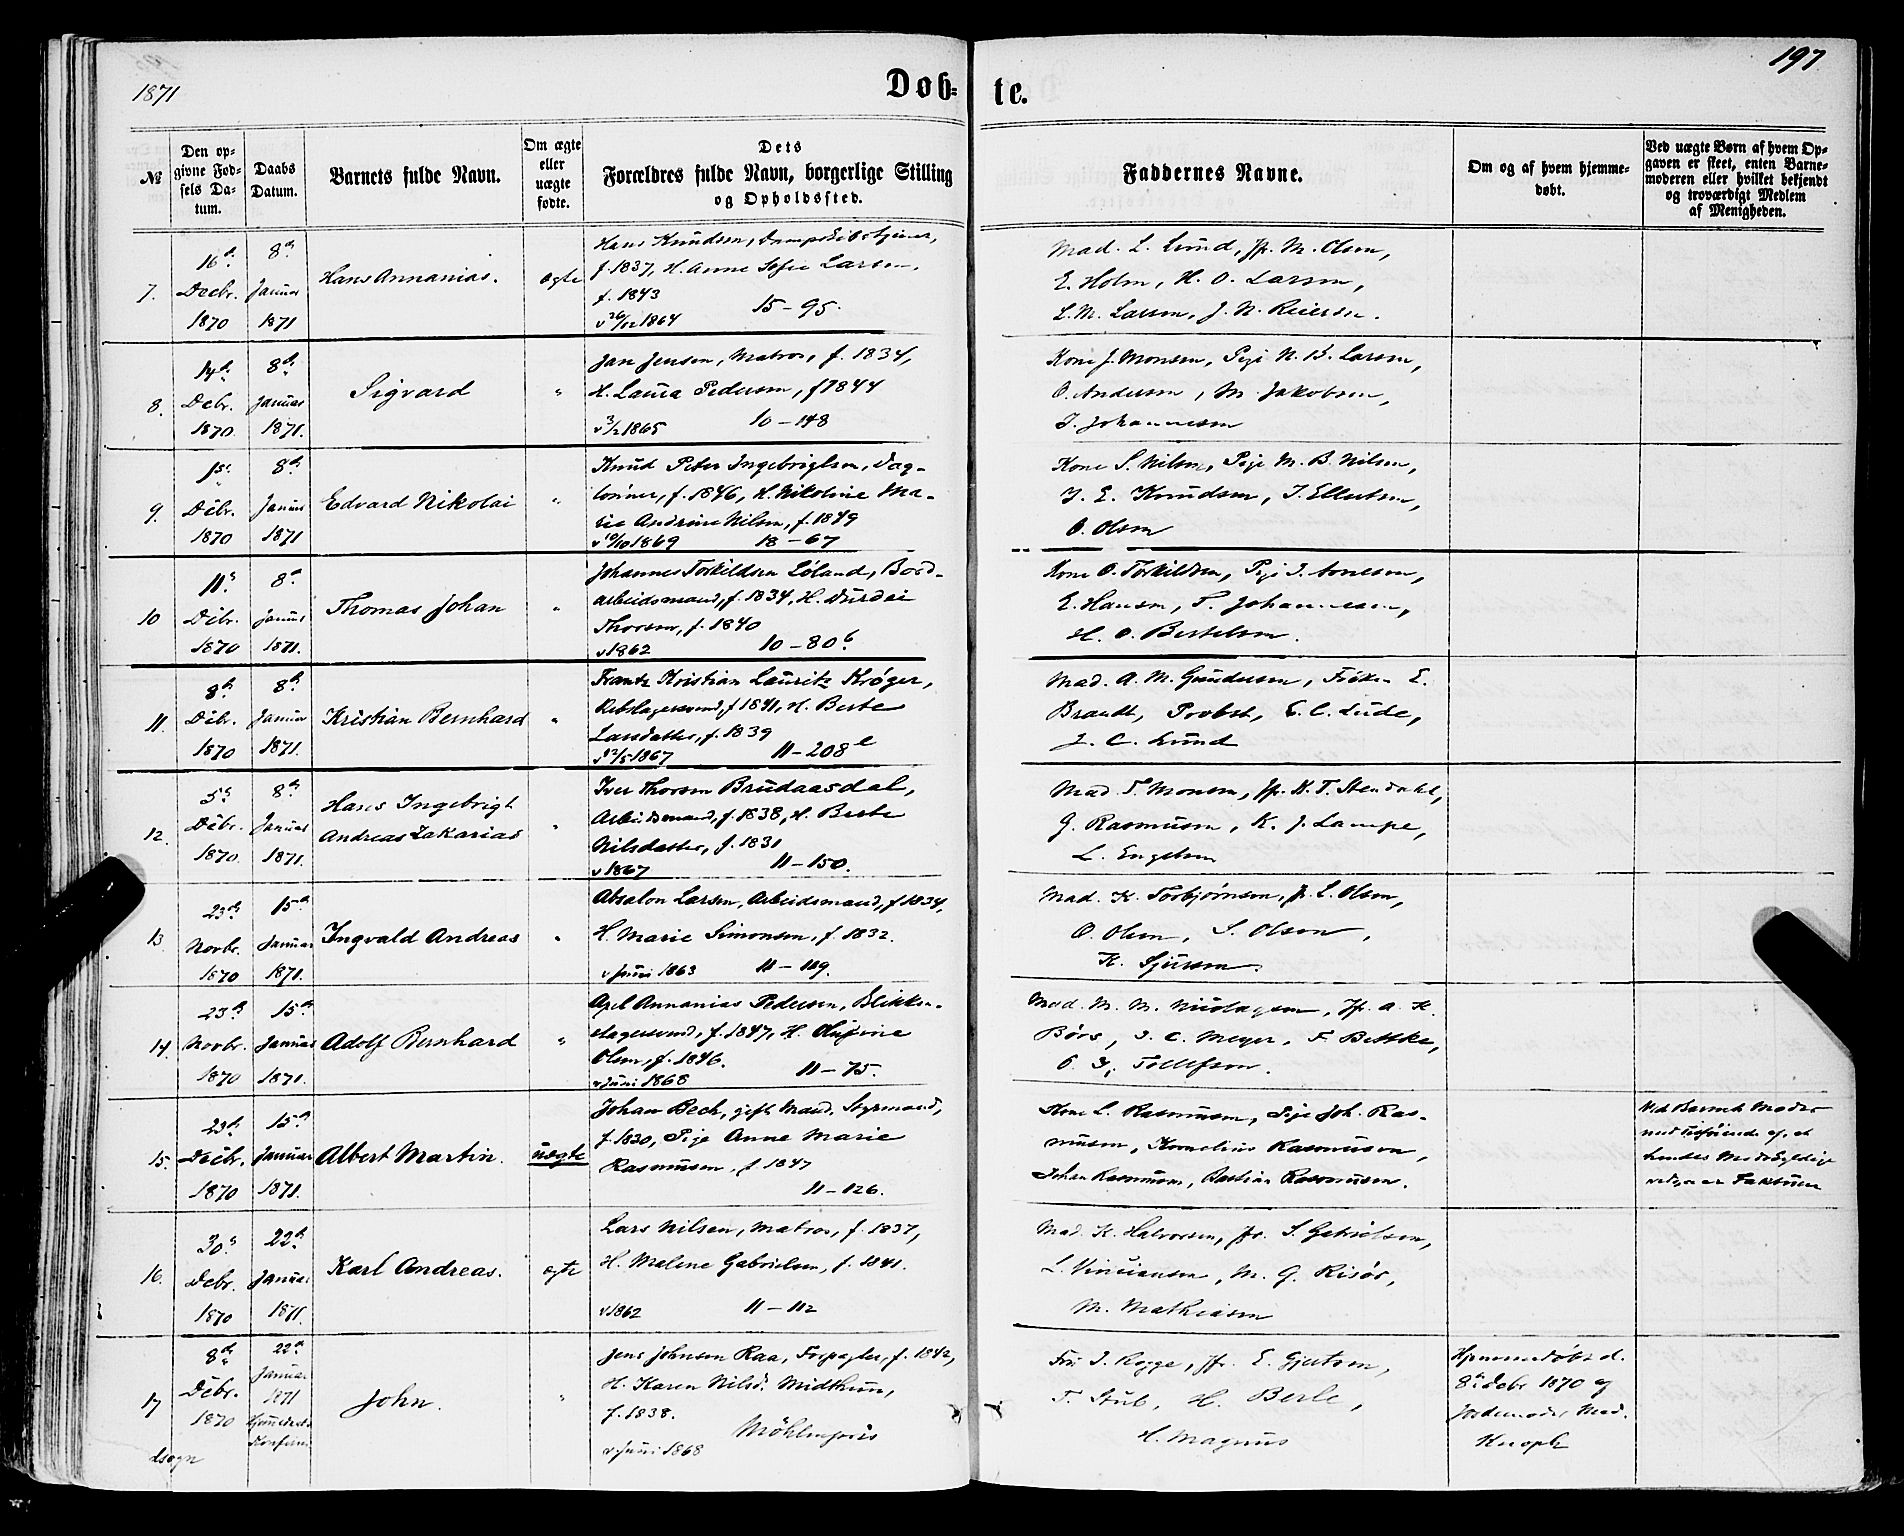 1871
Døb-
te.
197
№
Den op-
givne Fød-
sels Da-
tum.
Daabs
Datum.
Barnets fulde Navn.
Om ægte
eller
uægte
fødte.
Dets
Forældres fulde Navn, borgerlige Stilling
og Opholdssted.
Faddernes Navne.
Om og af hvem hjemme-
døbt.
Ved uægte Børn af hvem Op-
gaven er skeet, enten Barne-
moderen eller hvilket bekjendt
og troværdigt Medlem
af Menigheden.
7.
16d
Decbr.
1870
8d
Januar
1871
Hans Annanias.
ægte
Hans Knudsen,
f. 1837, H. Anne Sofie Larsen,
f. 1843
v 26/12 1864 15-95.
Mad. L. Lund, Jfr. M. Olsen,
E. Holm, H. O. Larsen,
L. M. Larsen, J. N. Reiersen.
8.
14d
Debr.
1870
8d
Januar
1871.
Sigvard
"
Jan Jensen, Matros, f. 1834,
H. Laura Pedersen, f 1844
v 3/2 1865 10-148
Kone J. Monsen, Pige N. B. Larsen,
O. Andersen, M. Jakobsen,
J. Johannesen
9.
15
Debr.
1870
8d
Januar
1871
Edvard Nikolai
"
Knud Peter Ingebrigtsen, Dag-
lønner, f. 1846, H. Nikoline Ma-
rie Andrine Nilsen, f. 1849
v 10/10 1869 18-67
Kone S. Nilsen, Pige M. B. Nilsen,
J. E. Knudsen, J. Ellertsen,
O. Olsen
10
11
Debr.
1870
8d
Januar
1871.
Thomas Johan
"
Johannes Torkildsen Loland, Bord-
arbeidsmand, f. 1834, H. Durdei
Thorsen, f. 1840
v 1862 10-80b.
Kone O. Torkildsen, Pige J. Arnesen,
E. Hansen, T. Johannesen,
H. O. Bertelsen.
11.
8d
Debr.
1870
8d
Januar
1871.
Kristian Bernhard
"
Frantz Kristian Lauritz Krøger,
Rebslagersvend, f 1841, H. Berte
Larsdatter, f. 1839
v 12/5 1867 11-208e
Mad. A. M. Gundersen, Frøken E.
Brandt, Probst, E. C. Lude,
J. C. Lund
12.
5
Debr.
1870
8d
Januar
1871.
Hans Ingebrigt
Andreas Zakarias
"
Iver Thorsen Brudaasdal,
Arbeidsmand, f. 1838, H. Berte
Nilsdatter, f. 1831
v 1867 11-150.
Mad. T. Monsen, Jfr. K. T. Stendahl,
G. Rasmusen, K. J. Lampe,
L. Engelsen
13
23d
Novbr.
1870
15d
Januar
1871.
Ingvald Andreas
"
Absalon Larsen, Arbeidsmand, f 1834,
H. Marie Simonsen, f. 1832.
v Juni 1863 11-119.
Mad. K. Torbjørnsen, Jfr. L. Olsen,
O. Olsen, S. Olson,
K. Sjursen.
14.
23d
Novbr.
1870
15d
Januar
1871.
Adolf Bernhard
"
Axel Annanias Pedersen, Blikken-
slagersvend, f. 1847, H. Olufine
Olsen, f. 1846.
v Juni 1868 11-75.
Mad. M. M. Nicolaysen, Jfr. A. K.
Børs, J. C. Meyer, F. Bettke,
O. J. Tollefsen.
15.
23d
Decbr.
1870
15d
Januar
1871.
Albert Martin.
uægte
Johan Bech, gift Mand, Styrmand,
f. 1830, Pige Anne Marie
Rasmusen, f. 1847
11-126.
Kone L. Rasmusen, Pige Joh. Ras-
musen, Kornelius Rasmusen,
Johan Rasmusen, Bastian Rasmusen.
Ved Barnets Moder
med Tilføiende af, at
16.
30
Debr.
1870
22d
Januar
1871.
Karl Andreas.
ægte
Lars Nilsen, Matros, f. 1837,
H. Malene Gabrielsen, f. 1841.
v 1862 11-112
Mad. K. Halvorsen, Jfr. S. Gabrielsen,
L. Vinciansen, M. G. Risør,
M. Mathiasen
17
8d
Debr.
1870
22d
Januar
1871
John.
"
Jens Johnsen Raa, Forpagter, f. 1842,
H. Karen Nilsd. Midthun,
f. 1838.
v Juni 1868 Möhlenpris
Fru J. Rogge, Jfr. E. Gjertsen,
T. Stub, H. Berle,
H. Magnus
Hjemmedøbt d.
8de Debr 1870 af
Jordemoder Mad.
Knoph